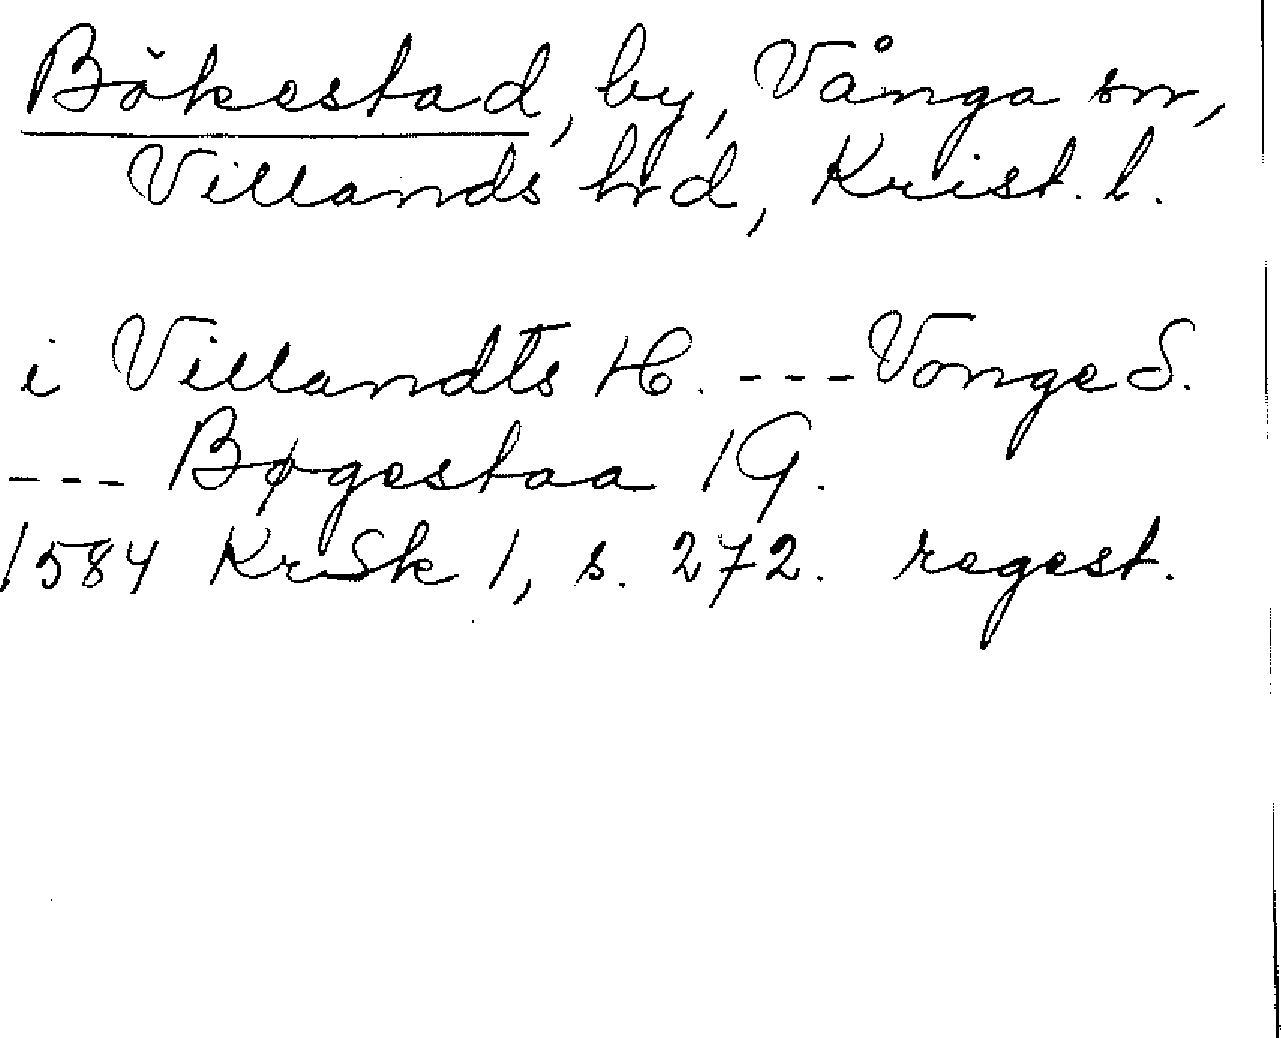 Bökestad, by, Vånga sn,
Villands hd, Krist. l.
i Villandts H. --- Vonge S.
--- Bøgestaa 1 G.
1584 KrSk 1, s. 272. regest.